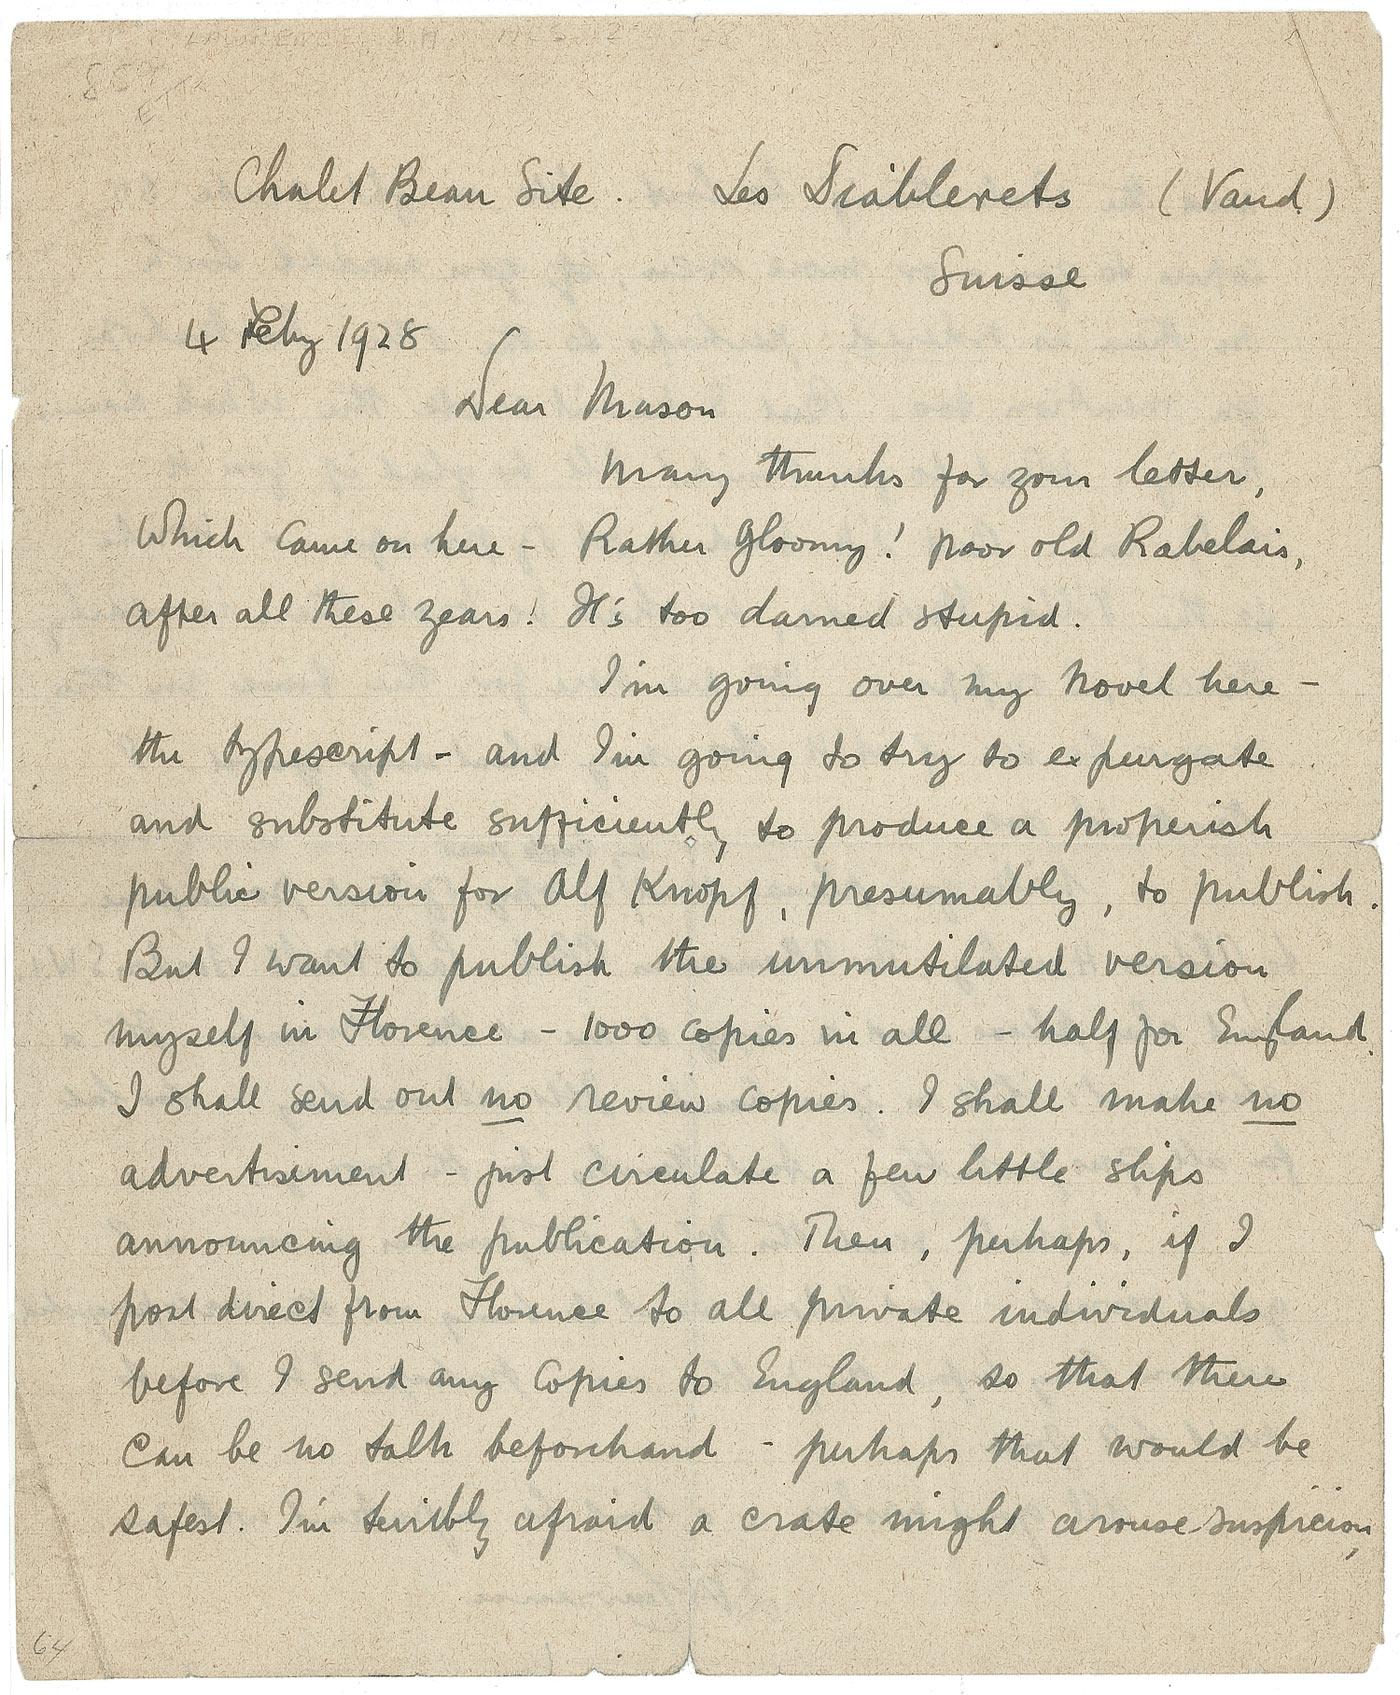 Chalet Beau Site. Les Diablerets (Vaud)
Suisse
4 Feby 1928
Dear Mason
Many thanks for your letter,
which came on here - Rather gloomy! poor old Rabelais,
after all these years! It's too darned stupid.
I'm going over my novel here -
the typescript - and I'm going to try to expurgate
and substitute sufficiently to produce a properish
public version for Alf Knopf, presumably, to publish.
But I want to publish the unmutilated version
myself in Florence - 1000 copies in all - half for England.
I shall send out no review copies. I shall make no
advertisement - just circulate a few little slips
announcing the publication. Then, perhaps, if I
post direct from Florence to all private individuals
before I send any copies to England, so that there
can be no talk beforehand - perhaps that would be
safest. I'm terribly afraid a crate might arouse suspicion,
64